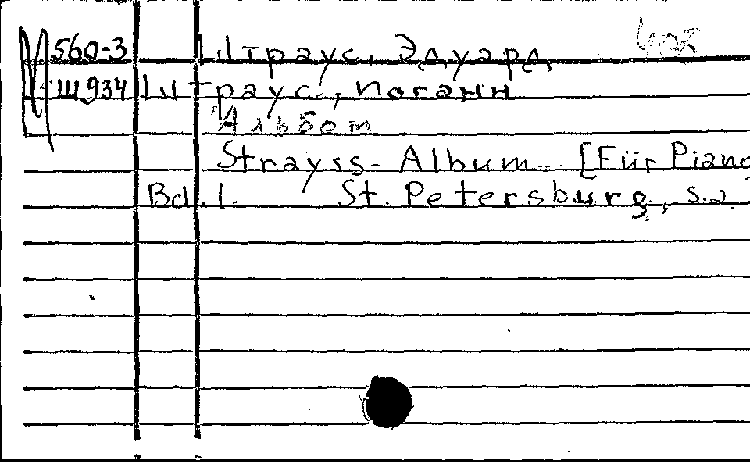 М 560-3 Штраус, Эдуард
Ш934 Штраус, Иоганн
Альбом
Strayss-Album. [Für Piano
Bd. 1. St. Petersburg, s.a.